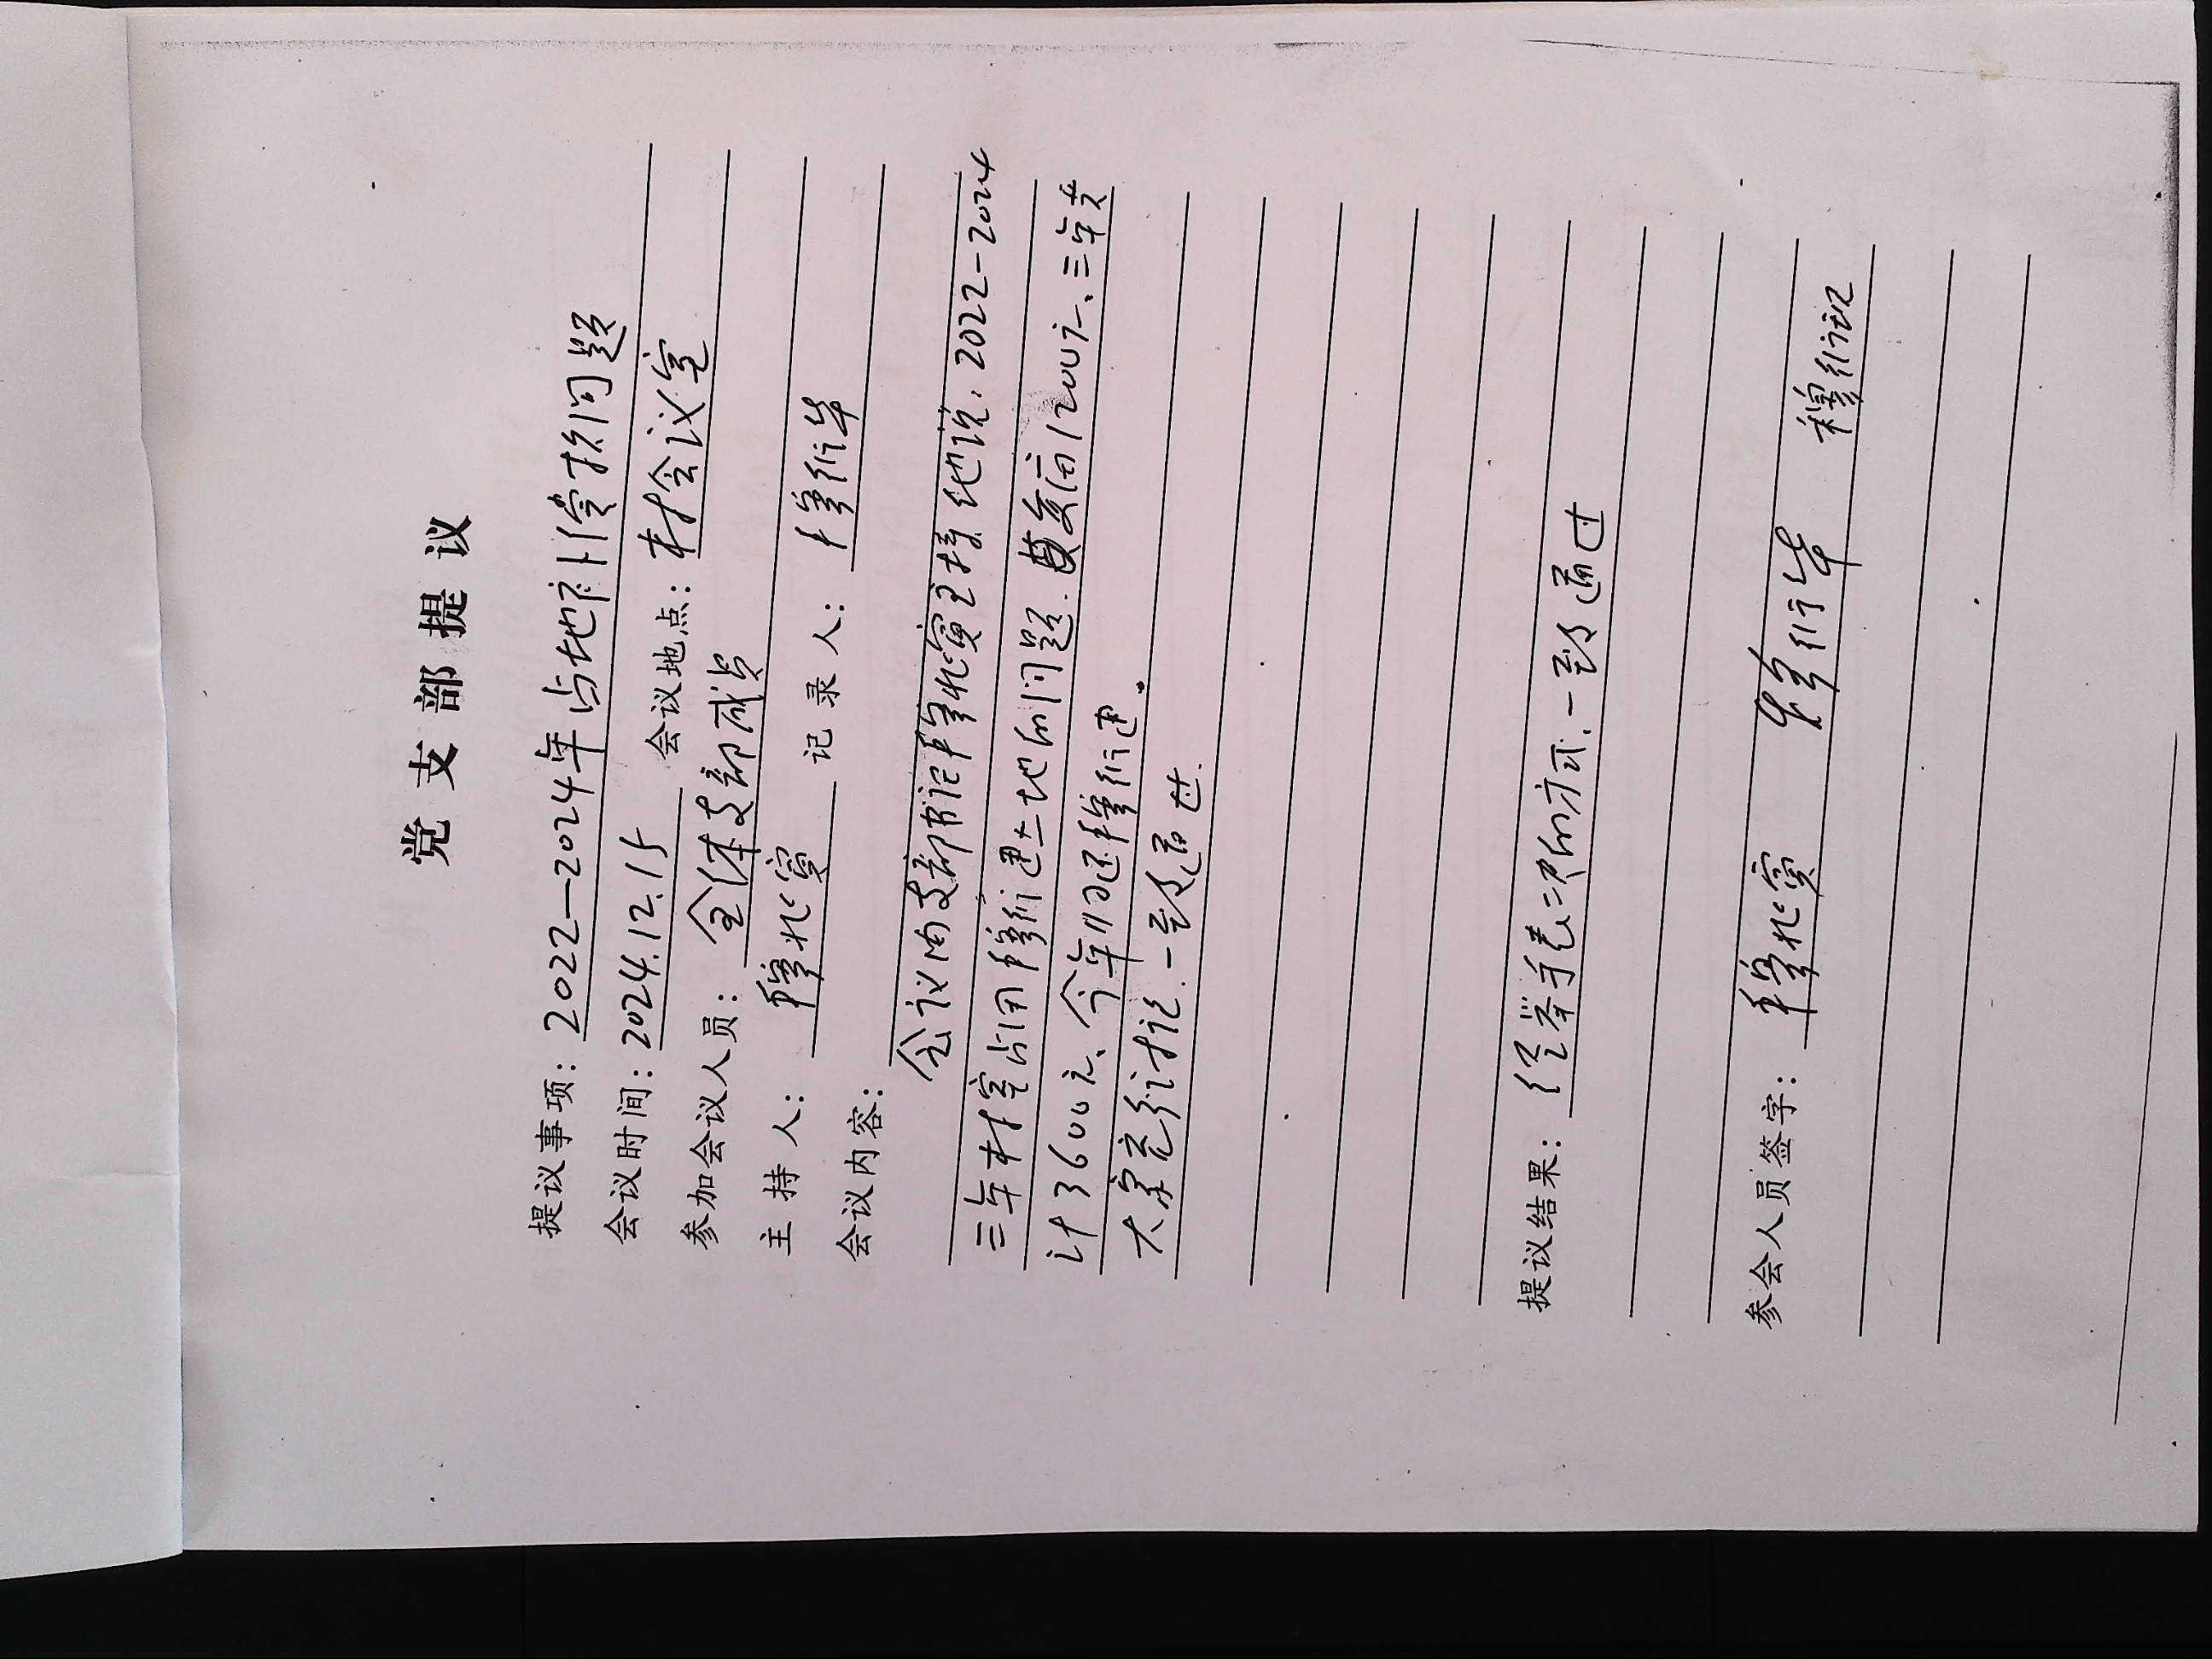 党支部提议
提议事项：2022—2024年占地补偿款问题
会议时间：2024.12.15 会议地点：村会议室
参加会议人员：全体支部成员
主持人：穆兆宾 记录人：穆衍华
会议内容：
会议由支部书记穆兆宾主持他说.2022-2024
三年村室占用穆衍建土地的问题.每亩1200元、三年共
计3600元、今年归还穆衍建.
大家充分讨论.一致通过.
提议结果：经举手表决的方式.一致通过
参会人员签字：穆兆宾 穆衍华 穆衍